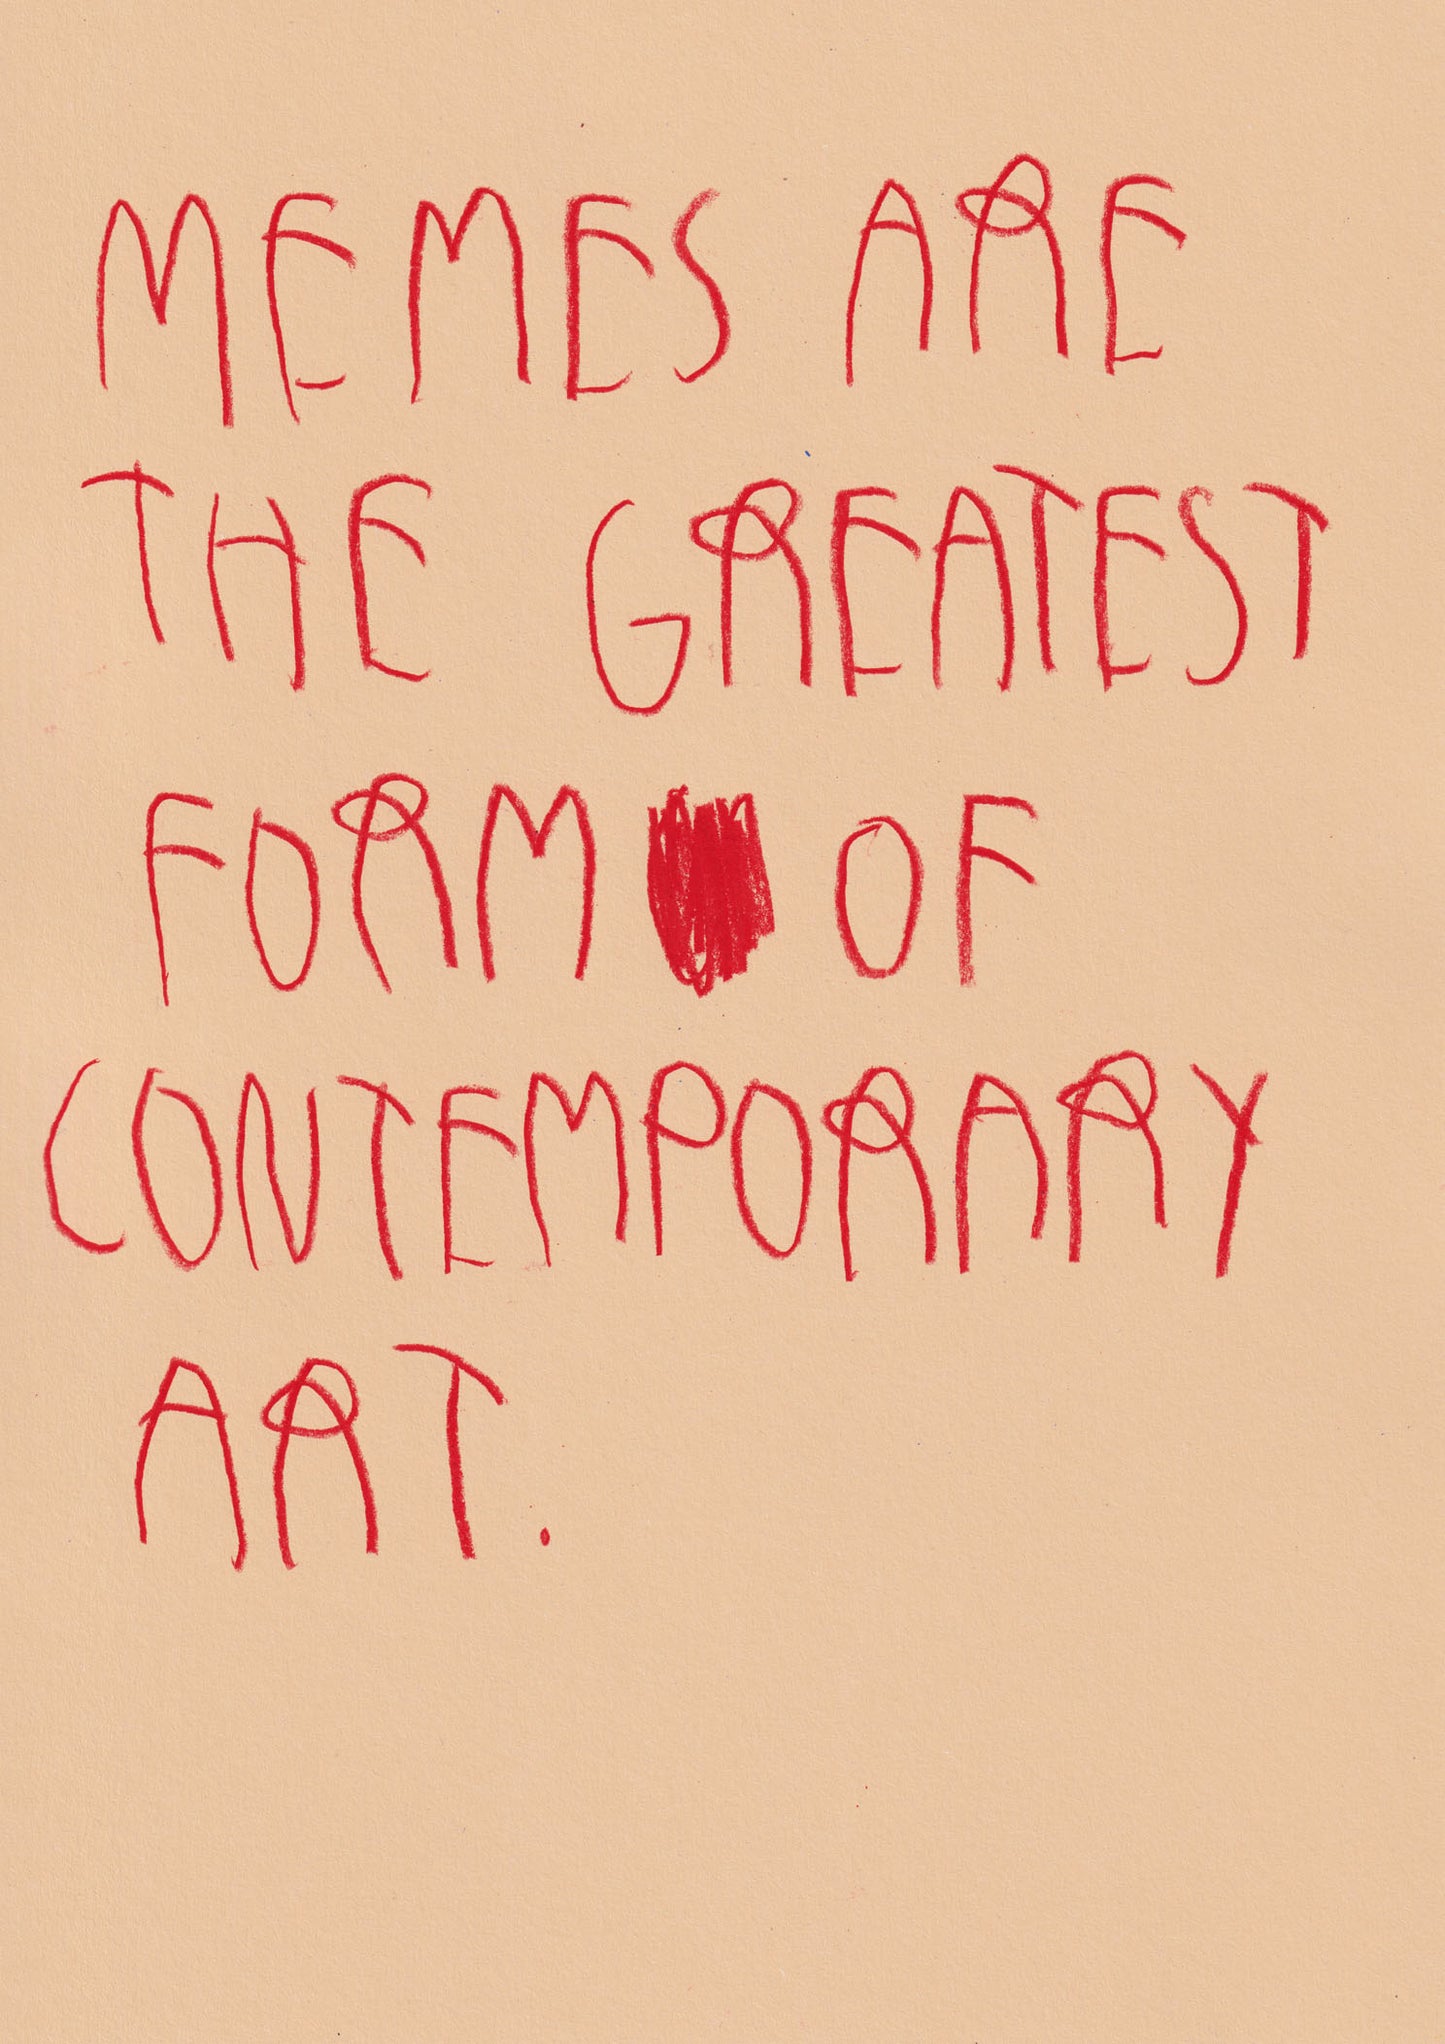 MEMES ARE
THE GREATEST
FORM OF
CONTEMPORARY
ART.